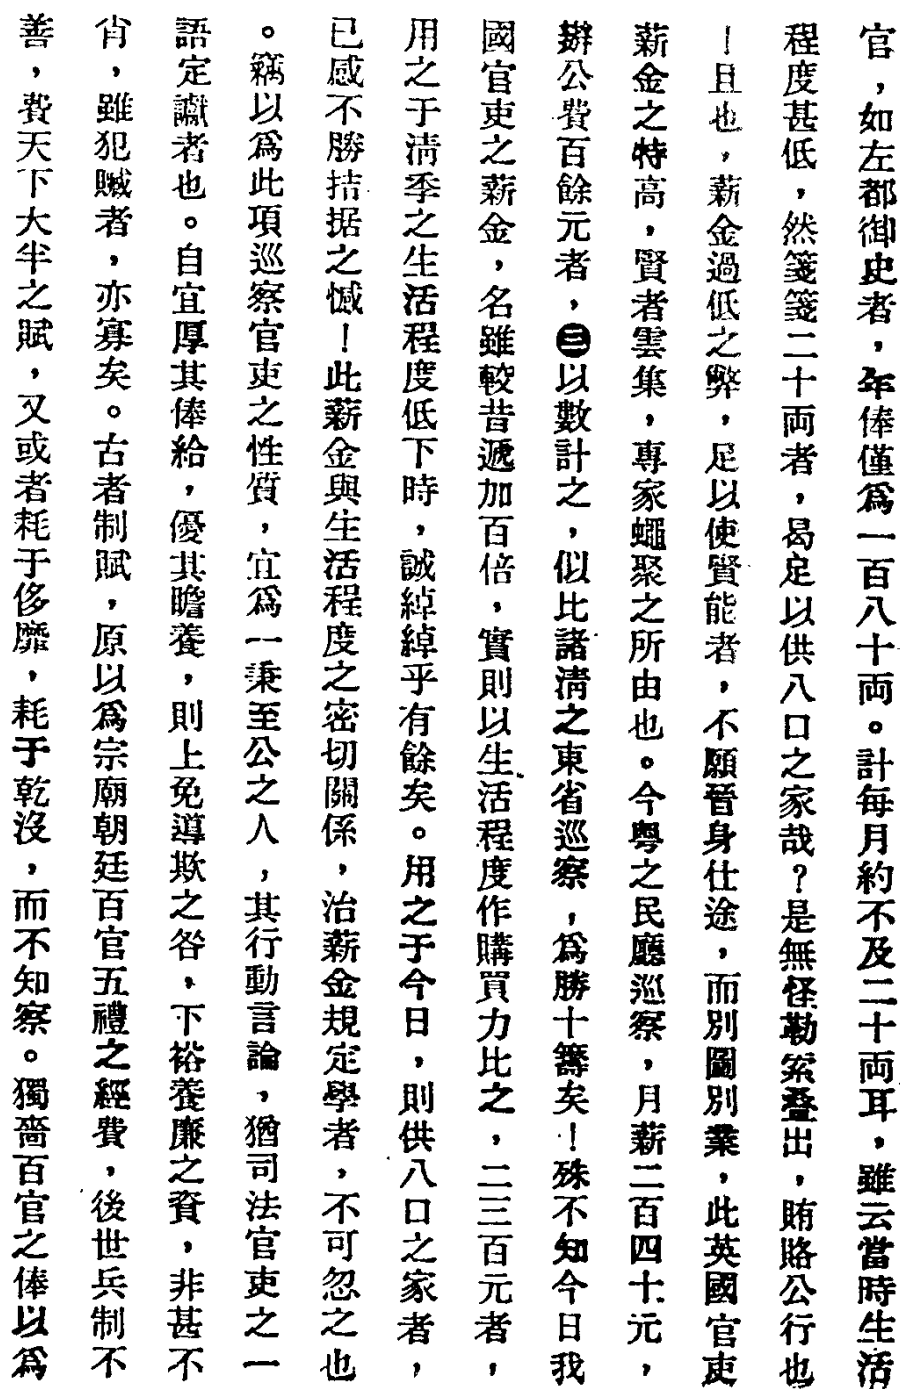 官，如左都御史者，年俸僅爲一百八十両。計每月約不及二十両耳，雖云當時生活
程度甚低，然箋箋二十両者，曷足以供八口之家哉？是無怪勒索叠出，賄賂公行也
！且也，薪金過低之弊，足以使賢能者，不願晉身仕途，而別圖別業，此英國官吏
薪金之特高，賢者雲集，專家蠅聚之所由也。今粤之民廳巡察，月薪二百四十元，
辦公費百餘元者，㊂以數計之，似比諸淸之東省巡察，爲勝十籌矣！殊不知今日我
國官吏之薪金，名雖較昔遞加百倍，實則以生活程度作購買力比之，二三百元者，
用之于淸季之生活程度低下時，誠綽綽乎有餘矣。用之于今日，則供八口之家者，
已感不勝拮据之憾！此薪金與生活程度之密切關係，治薪金規定學者，不可忽之也
。竊以爲此項巡察官吏之性質，宜爲一秉至公之人，其行動言論，猶司法官吏之一
語定讞者也。自宜厚其俸給，優其瞻養，則上免導欺之咎，下裕養廉之資，非甚不
肖，雖犯贓者，亦寡矣。古者制賦，原以爲宗廟朝廷百官五禮之經費，後世兵制不
善，費天下大半之賦，又或者耗于侈靡，耗于乾沒，而不知察。獨嗇百官之俸以爲